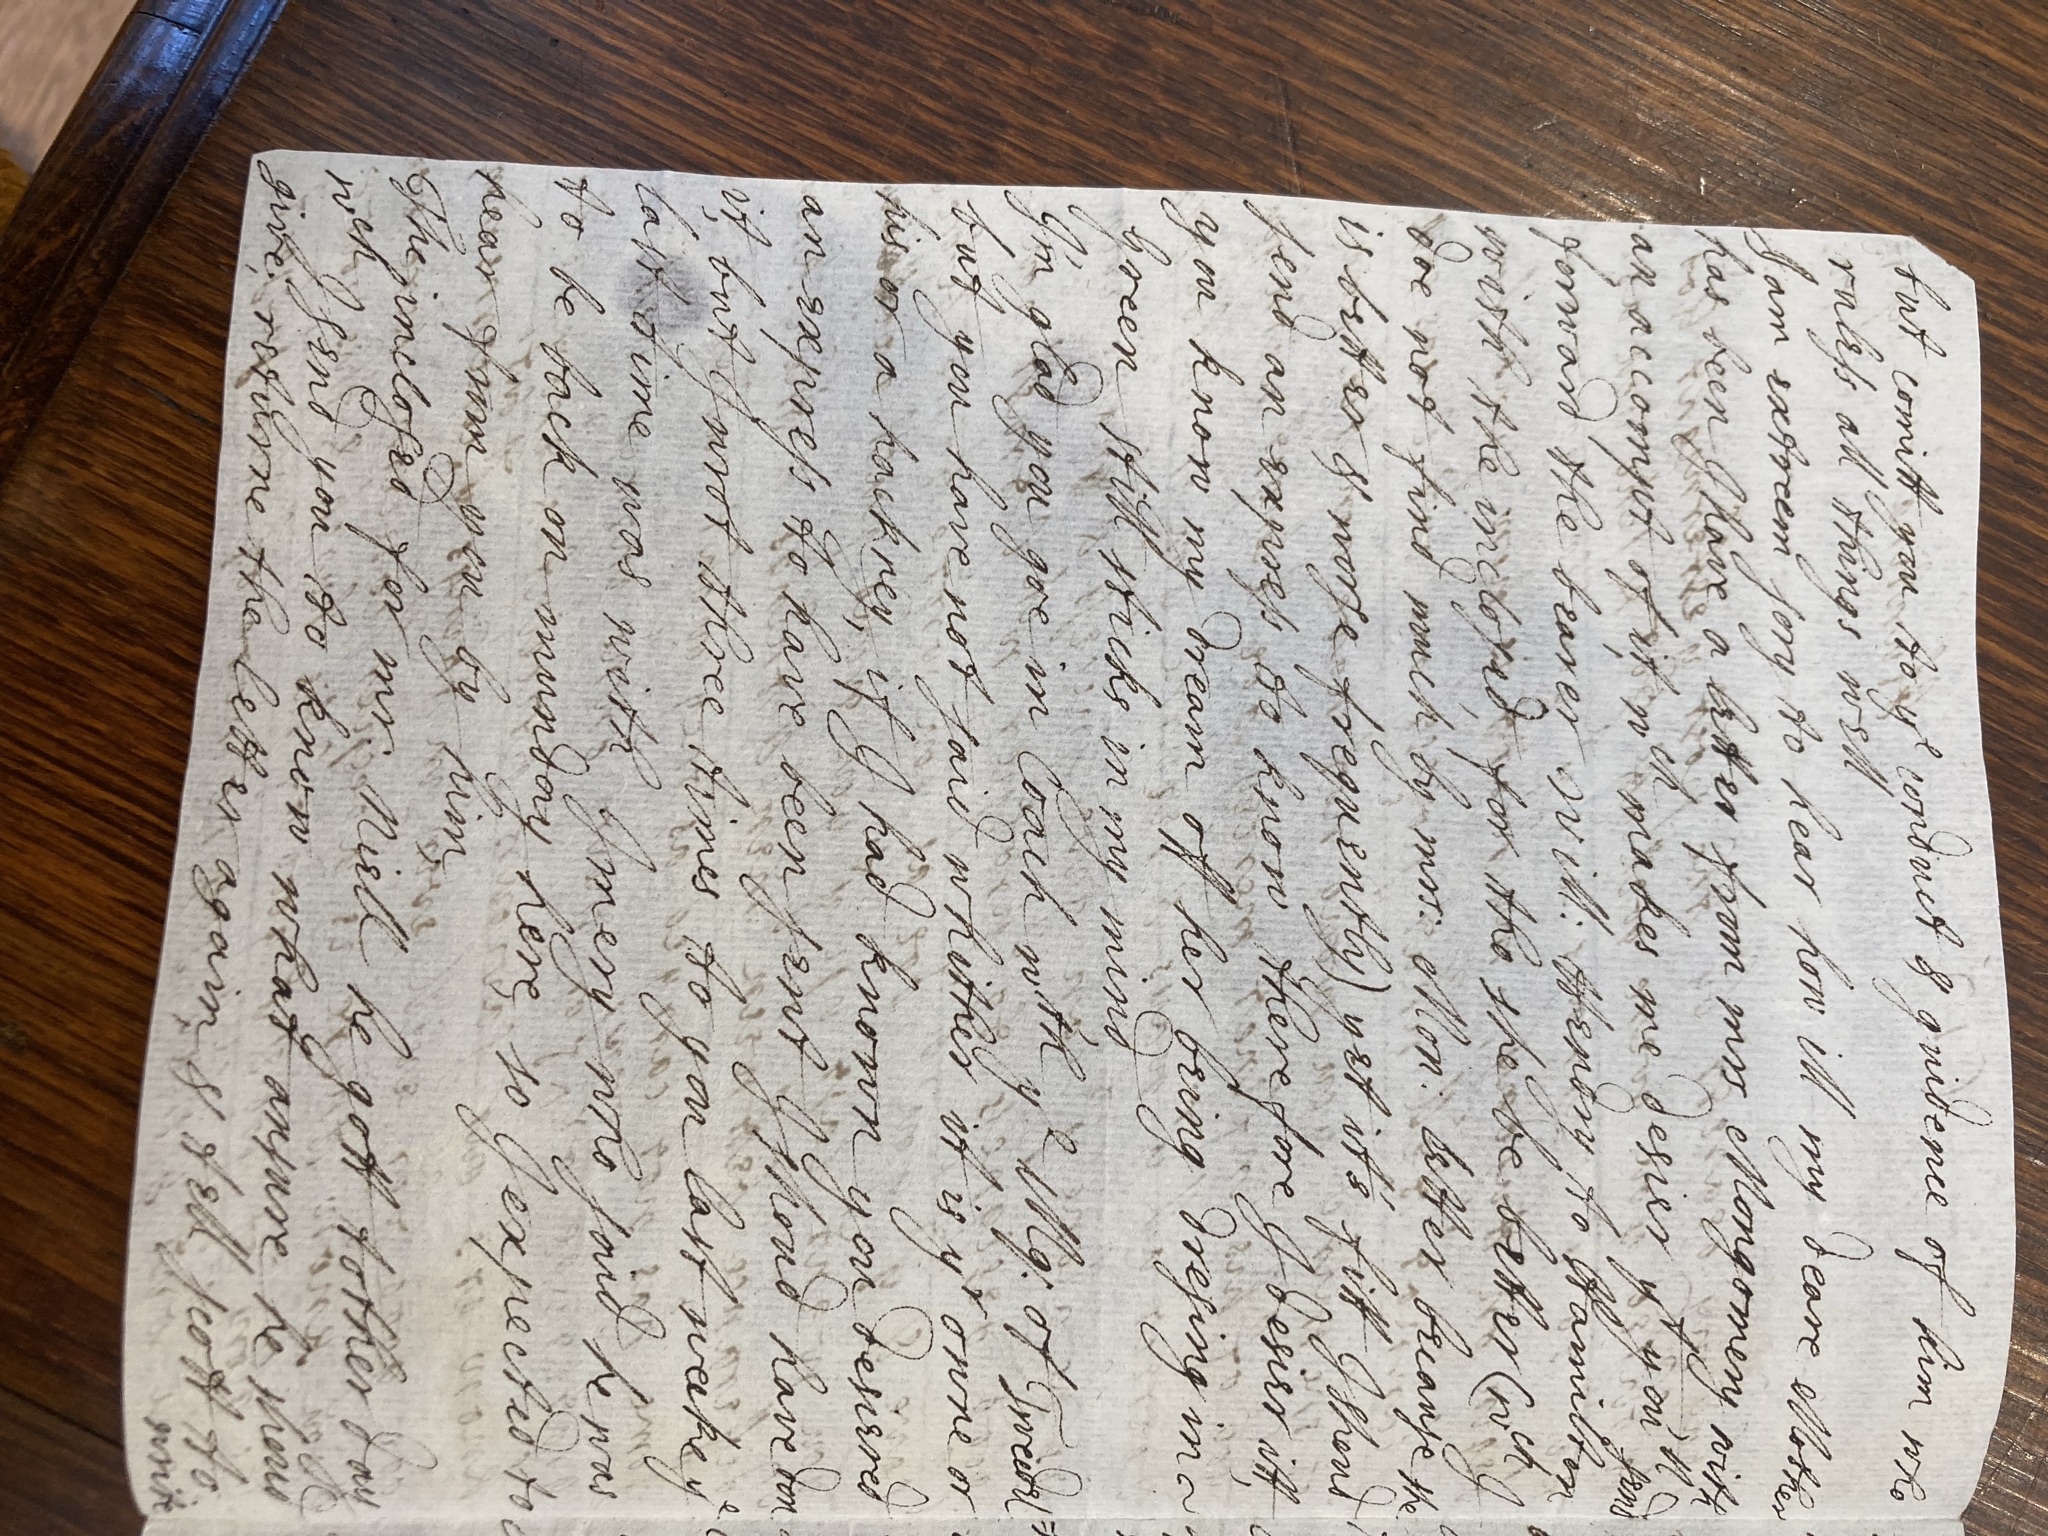 but comitt you to ye conduct & guidence of him who
ruless all things well
I am extreem sory to hear how ill my deare Mother
has been I have a letter from mrs Mongomery with
an accompt of it, wch makes me desier yt you'll send
forward the bearer Will: Hendry to Hamilton
with the inclosed, for tho she be better (wch I
doe not find much by mrs: Mon: letter because she
is better & worse frequently) yet it's fitt I shoud
send an express to know therefore I desier itt,
you know my dream off her being dresing in
Green still sticks in my mind,
I'm glad you goe in Coach wth ye Mq: of Tweedel
but you have not said whither it is yr owne or
his or a hackney, if I had known you desiered
an express to have been sent I shoud have don
it, but I wrot three times to you last weeke ye
last time was with Imery who said he was
to be back on munday here, so I expected to
hear from you by him,
The inclosed for mr: Niell he gott tother day
wch I send you to know what ansure he shoud
give; returne the letter again, & tell scott to
write